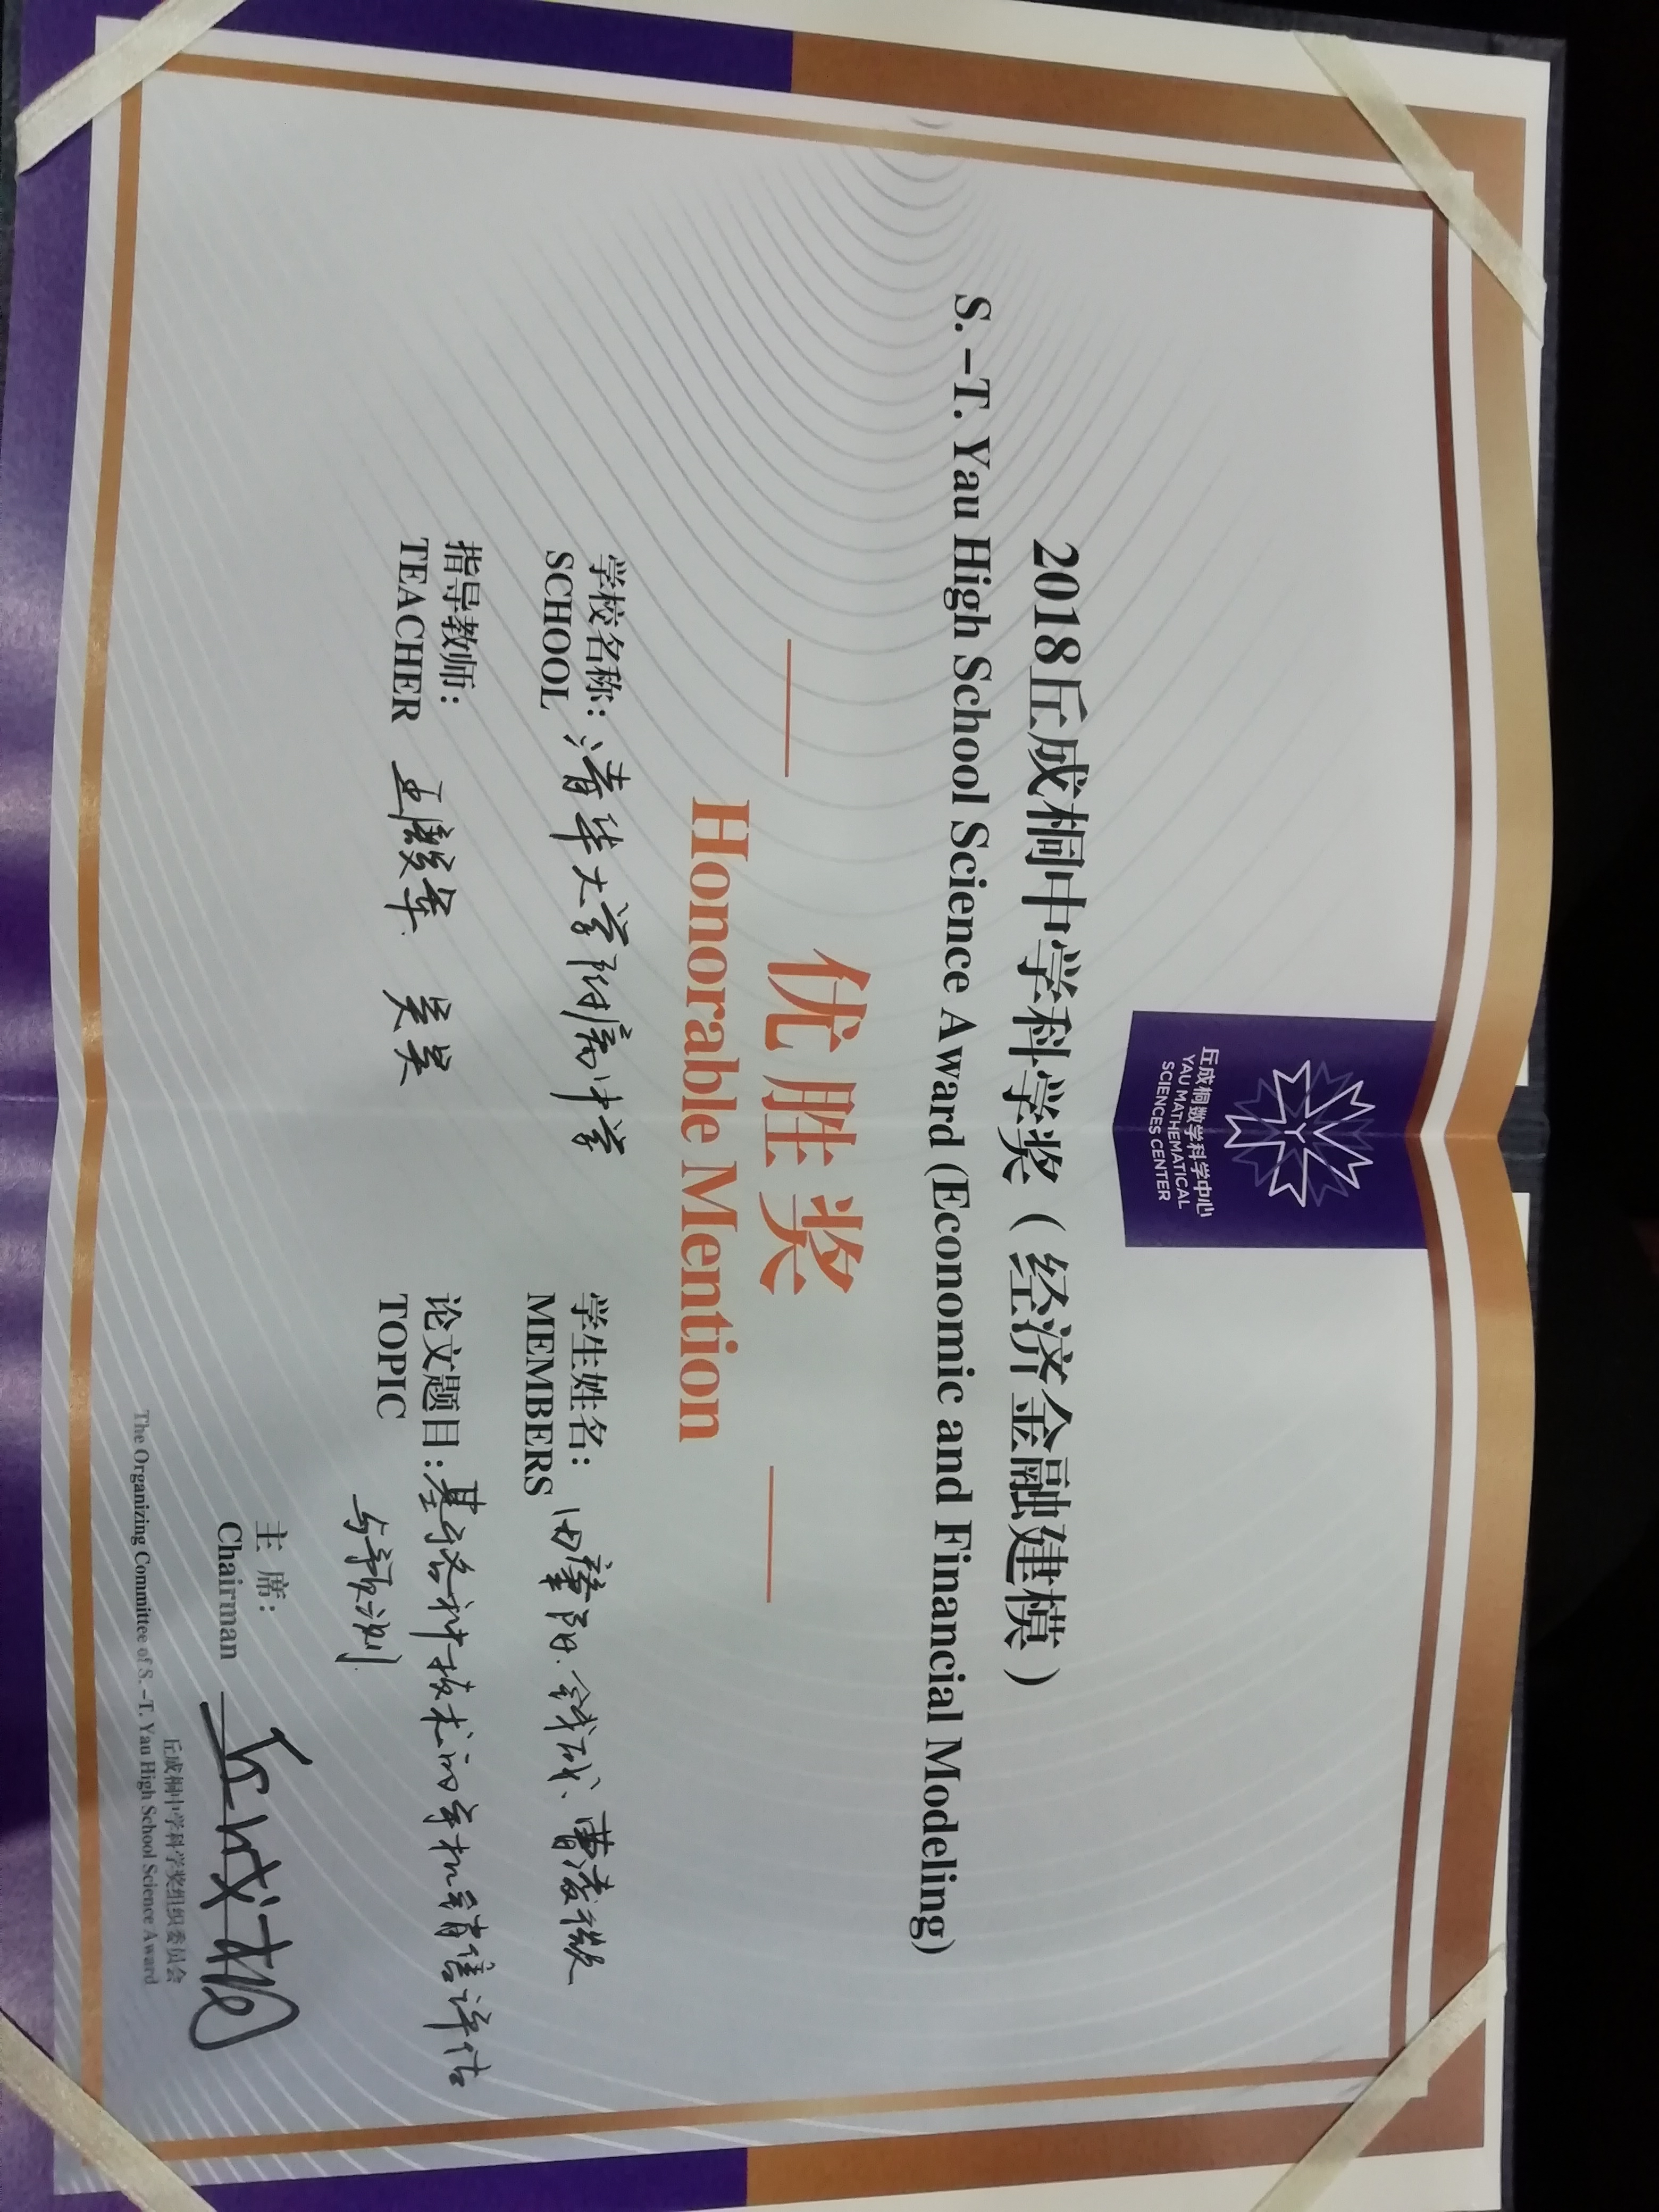 丘成桐数学科学中心
YAU MATHEMATICAL
SCIENCES CENTER
2018丘成桐中学科学奖（经济金融建模）
S. -T. Yau High School Science Award (Economic and Financial Modeling)
优胜奖
Honorable Mention
学校名称：清华大学附属中学
SCHOOL
学生姓名：田肇阳、钱成、曹凌微
MEMBERS
指导教师：王殿军 吴昊
TEACHER
论文题目：基于爬虫技术的手机销售评估
TOPIC
与预测
主 席：
Chairman
丘成桐
丘成桐中学科学奖组织委员会
The Organizing Committee of S. -T. Yau High School Science Award